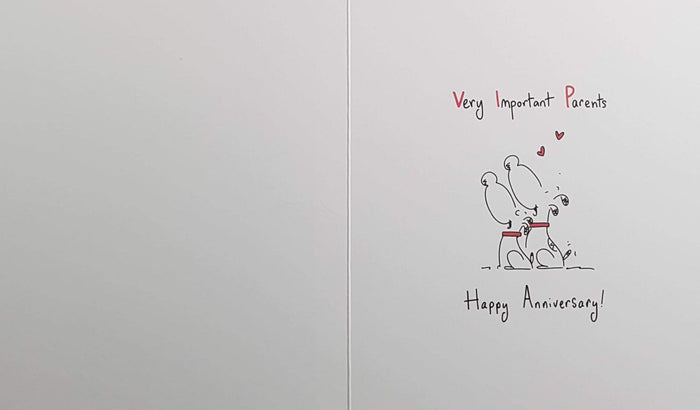 Very Important Parents
Happy Anniversary!